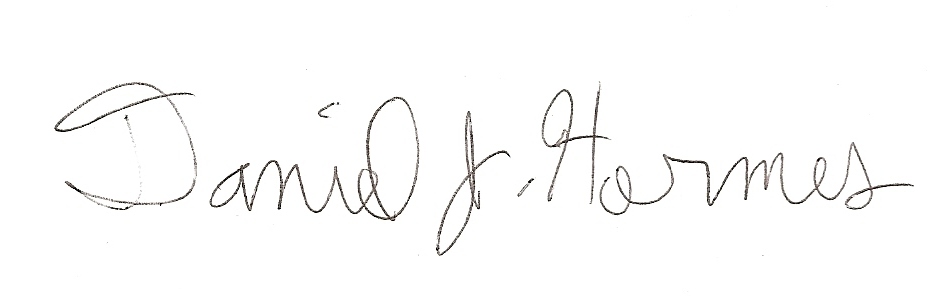 Daniel J. Hermes